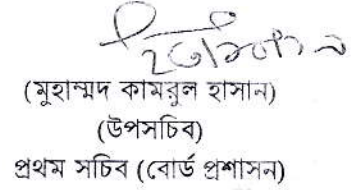 (মুহাম্মদ কামরুল হাসান)
(উপসচিব)
প্রথম সচিব (বোর্ড প্রশাসন)